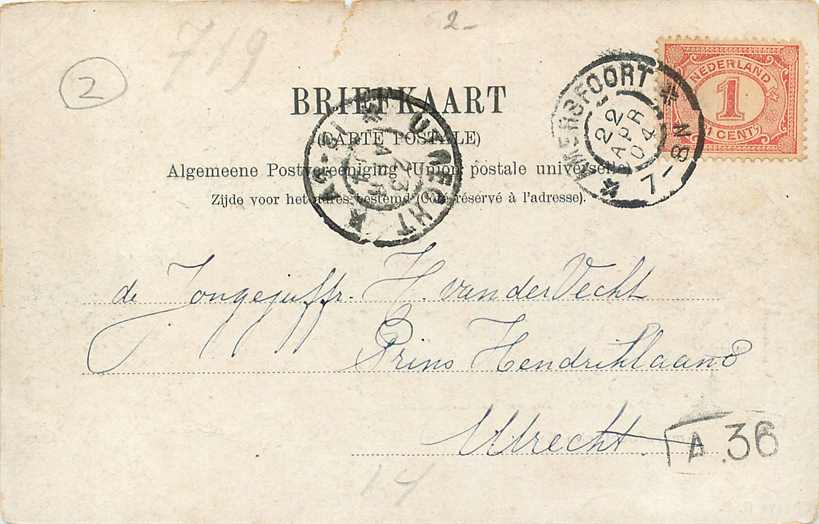 719
2-
2
NEDERLAND
1
1 CENT
AMERSFOORT
22 APR 04
7-8N
BRIEFKAART
(CARTE POSTALE)
UTRECHT
Algemeene Postvereeniging (Union postale universelle)
Zijde voor het adres bestemd (Côté réservé à l'adresse).
de Jongejuffr. H. van der Vecht
Prins Hendriklaan
Utrecht.
A 36